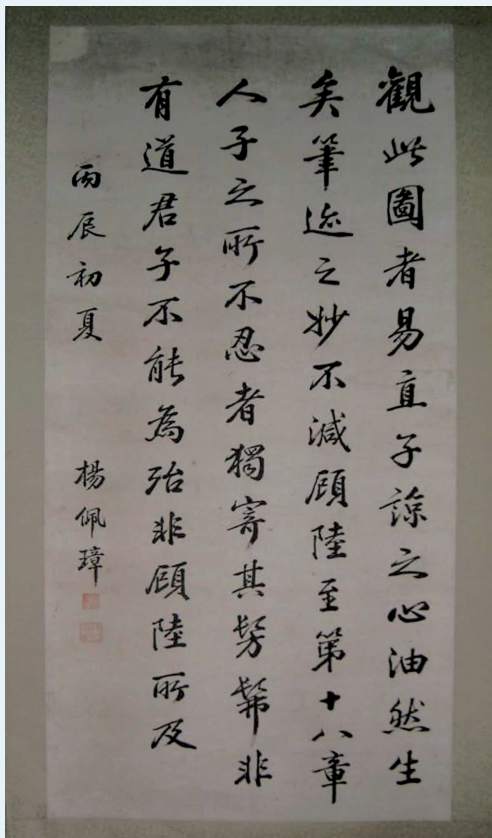 觀此圖者易直子諒之心油然生
矣筆迹之妙不減顧陸至第十八章
人子之所不忍者獨寄其髣髴非
有道君子不能為殆非顧陸所及
丙辰初夏
楊佩璋